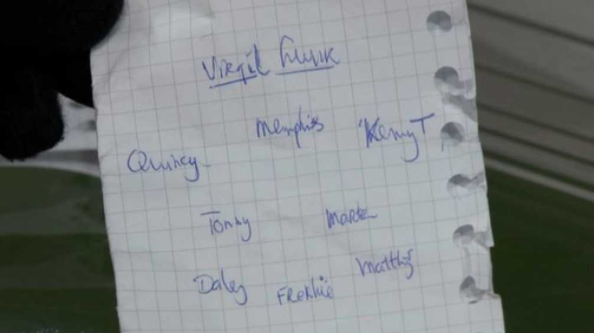 Virgil Luuk
Memphis 'Kenny T
Quincy
Tonny Marten
Daley Frenkie Matthijs